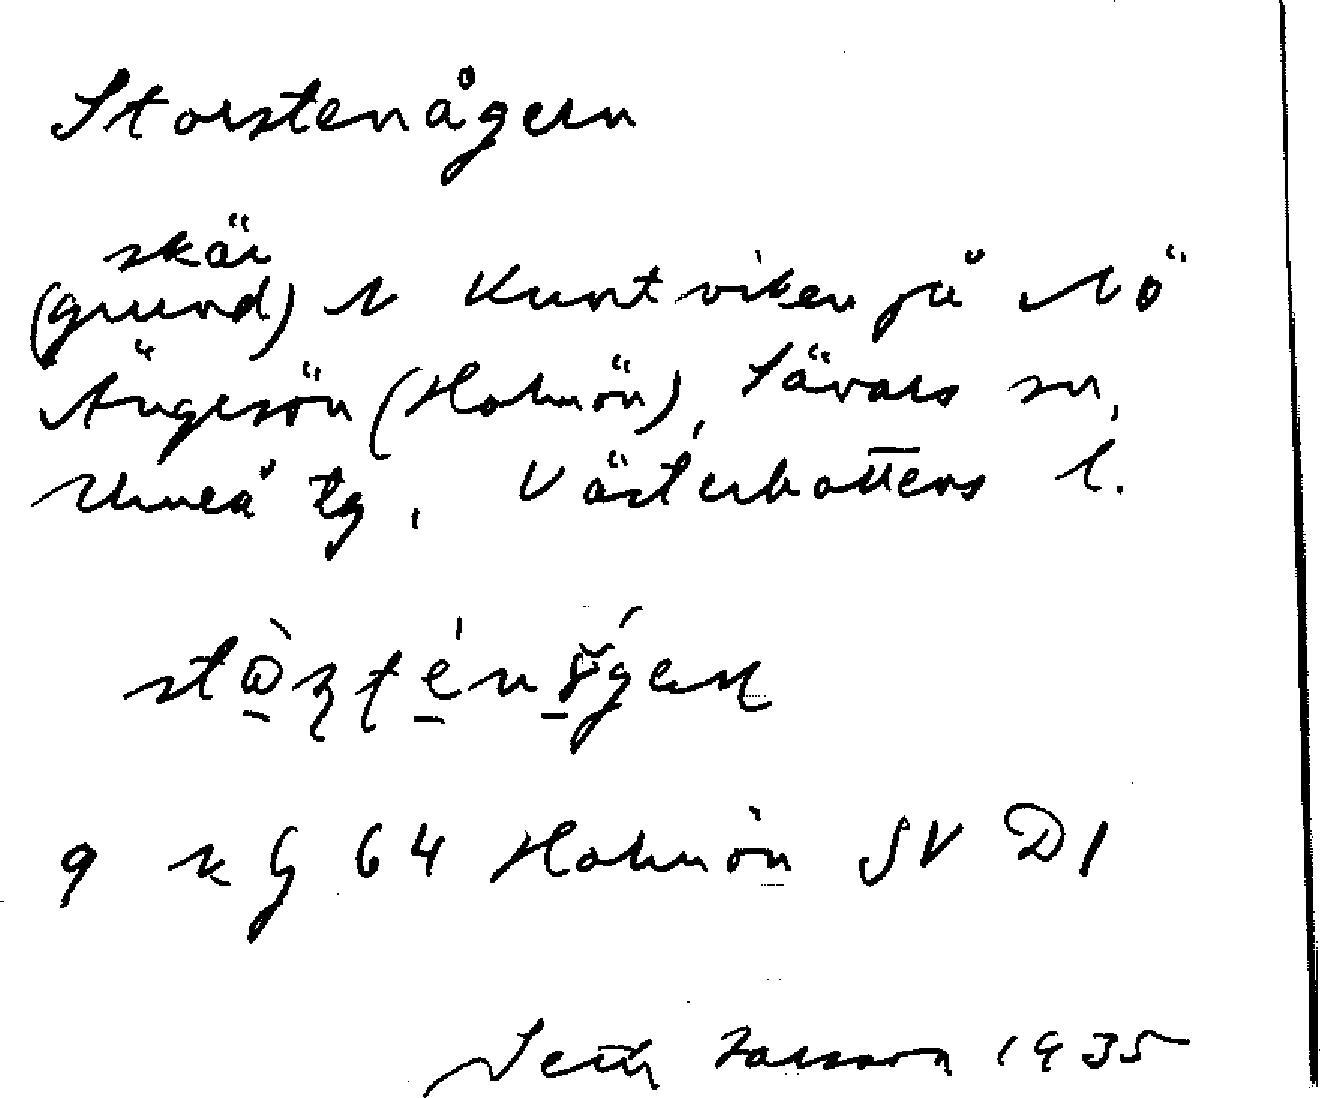 Storstenågern
skär
(grund) N Kuntviken på NÖ
Ängesön (Holmön), Sävars sn,
Umeå tg, Västerbottens l.
9 kg 64 Holmön SV D1
Seth Larsson 1935